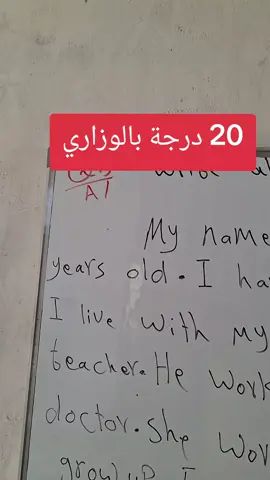 20 درجة بالوزاري
A1
My name
years old. I ha
I live with my
teacher. He work
doctor. She wor
grow up I